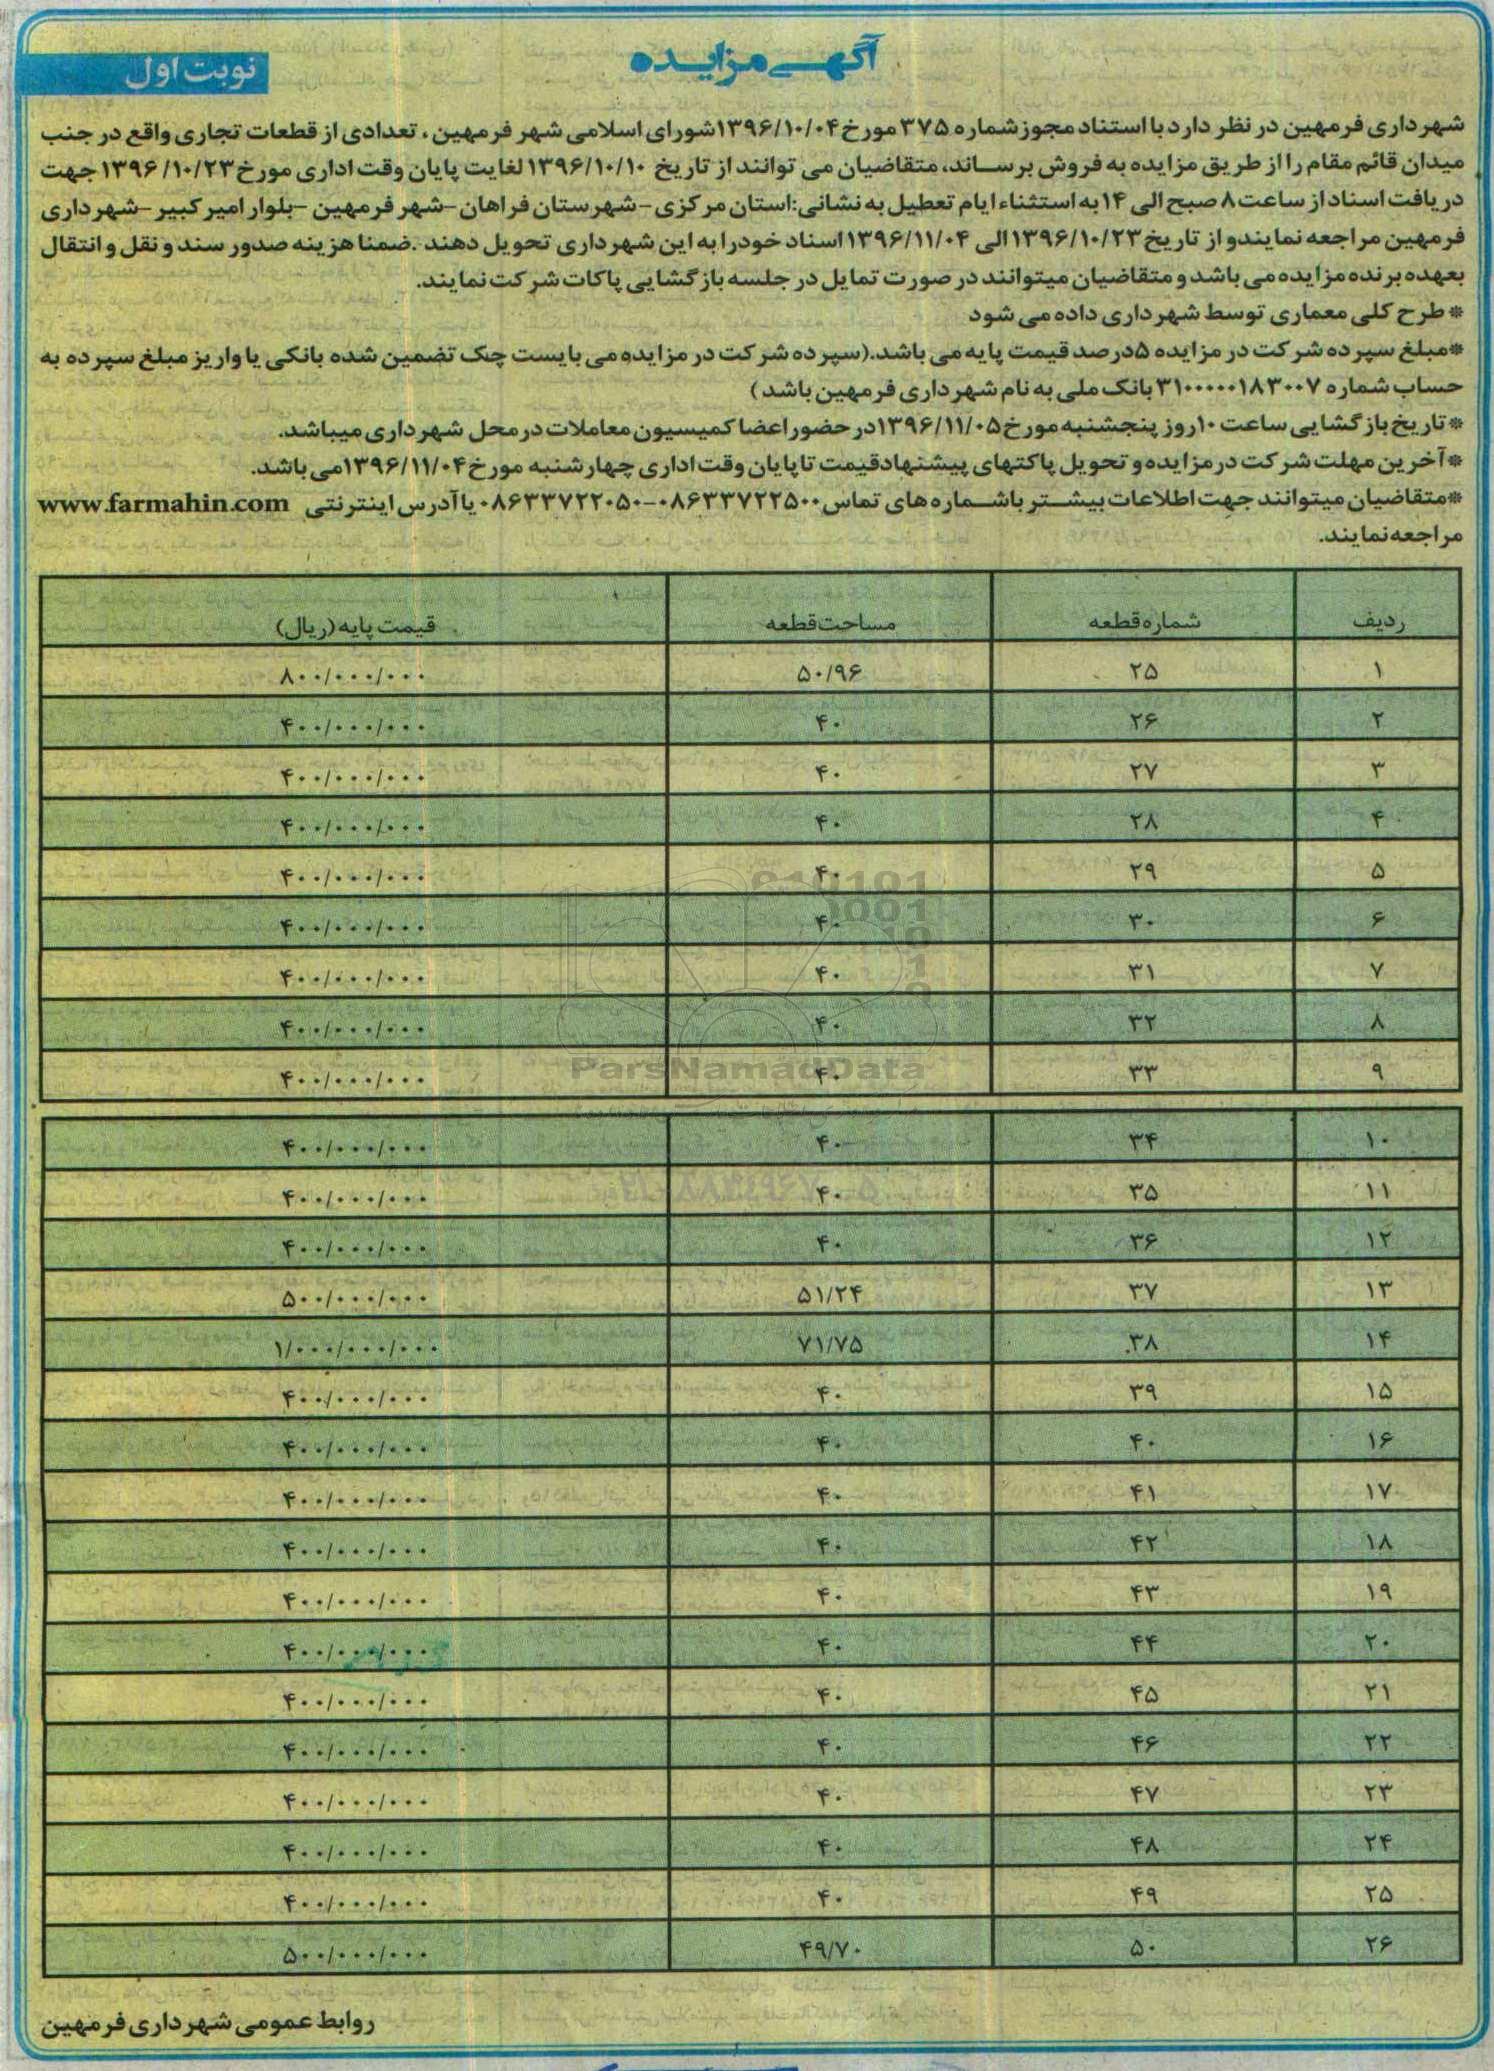 آگهی مزایده
نوبت اول
شهرداری فرمهین در نظر دارد با استناد مجوز شماره ۳۷۵ مورخ ۱۳۹۶/۱۰/۰۴ شورای اسلامی شهر فرمهین، تعدادی از قطعات تجاری واقع در جنب
میدان قائم مقام را از طریق مزایده به فروش برساند، متقاضیان می توانند از تاریخ ۱۳۹۶/۱۰/۱۰ لغایت پایان وقت اداری مورخ ۱۳۹۶/۱۰/۲۳ جهت
دریافت اسناد از ساعت ۸ صبح الی ۱۴ به استثناء ایام تعطیل به نشانی:استان مرکزی-شهرستان فراهان-شهر فرمهین -بلوار امیرکبیر-شهرداری
فرمهین مراجعه نمایند و از تاریخ ۱۳۹۶/۱۰/۲۳ الی ۱۳۹۶/۱۱/۰۴ اسناد خود را به این شهرداری تحویل دهند .ضمنا هزینه صدور سند و نقل و انتقال
بعهده برنده مزایده می باشد و متقاضیان میتوانند در صورت تمایل در جلسه بازگشایی پاکات شرکت نمایند.
* طرح کلی معماری توسط شهرداری داده می شود
*مبلغ سپرده شرکت در مزایده ۵درصد قیمت پایه می باشد.(سپرده شرکت در مزایده می بایست چک تضمین شده بانکی یا واریز مبلغ سپرده به
حساب شماره ۳۱۰۰۰۰۰۱۸۳۰۰۷ بانک ملی به نام شهرداری فرمهین باشد )
* تاریخ بازگشایی ساعت ۱۰روز پنجشنبه مورخ ۱۳۹۶/۱۱/۰۵در حضور اعضا کمیسیون معاملات در محل شهرداری میباشد.
*آخرین مهلت شرکت در مزایده و تحویل پاکتهای پیشنهاد قیمت تا پایان وقت اداری چهارشنبه مورخ ۱۳۹۶/۱۱/۰۴می باشد.
*متقاضیان میتوانند جهت اطلاعات بیشتر با شماره های تماس ۰۸۶۳۳۷۲۲۵۰۰-۰۸۶۳۳۷۲۲۰۵۰ یا آدرس اینترنتی www.farmahin.com
مراجعه نمایند.
ردیف شماره قطعه مساحت قطعه قیمت پایه (ریال)
۱ ۲۵ ۵۰/۹۶ ۸۰۰/۰۰۰/۰۰۰
۲ ۲۶ ۴۰ ۴۰۰/۰۰۰/۰۰۰
۳ ۲۷ ۴۰ ۴۰۰/۰۰۰/۰۰۰
۴ ۲۸ ۴۰ ۴۰۰/۰۰۰/۰۰۰
۵ ۲۹ ۴۰ ۴۰۰/۰۰۰/۰۰۰
۶ ۳۰ ۴۰ ۴۰۰/۰۰۰/۰۰۰
۷ ۳۱ ۴۰ ۴۰۰/۰۰۰/۰۰۰
۸ ۳۲ ۴۰ ۴۰۰/۰۰۰/۰۰۰
۹ ۳۳ ۴۰ ۴۰۰/۰۰۰/۰۰۰
ParsNamadData
۱۰ ۳۴ ۴۰ ۴۰۰/۰۰۰/۰۰۰
۱۱ ۳۵ ۴۰ ۴۰۰/۰۰۰/۰۰۰
۱۲ ۳۶ ۴۰ ۴۰۰/۰۰۰/۰۰۰
۱۳ ۳۷ ۵۱/۲۴ ۵۰۰/۰۰۰/۰۰۰
۱۴ ۳۸ ۷۱/۷۵ ۱/۰۰۰/۰۰۰/۰۰۰
۱۵ ۳۹ ۴۰ ۴۰۰/۰۰۰/۰۰۰
۱۶ ۴۰ ۴۰ ۴۰۰/۰۰۰/۰۰۰
۱۷ ۴۱ ۴۰ ۴۰۰/۰۰۰/۰۰۰
۱۸ ۴۲ ۴۰ ۴۰۰/۰۰۰/۰۰۰
۱۹ ۴۳ ۴۰ ۴۰۰/۰۰۰/۰۰۰
۲۰ ۴۴ ۴۰ ۴۰۰/۰۰۰/۰۰۰
۲۱ ۴۵ ۴۰ ۴۰۰/۰۰۰/۰۰۰
۲۲ ۴۶ ۴۰ ۴۰۰/۰۰۰/۰۰۰
۲۳ ۴۷ ۴۰ ۴۰۰/۰۰۰/۰۰۰
۲۴ ۴۸ ۴۰ ۴۰۰/۰۰۰/۰۰۰
۲۵ ۴۹ ۴۰ ۴۰۰/۰۰۰/۰۰۰
۲۶ ۵۰ ۴۹/۷۰ ۵۰۰/۰۰۰/۰۰۰
روابط عمومی شهرداری فرمهین